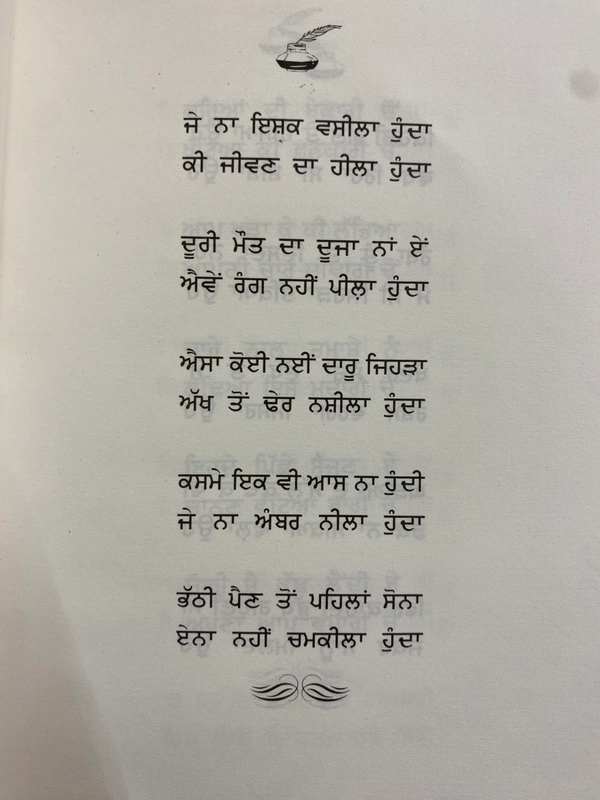 ਜੇ ਨਾ ਇਸ਼ਕ ਵਸੀਲਾ ਹੁੰਦਾ
ਕੀ ਜੀਵਣ ਦਾ ਹੀਲਾ ਹੁੰਦਾ
ਦੂਰੀ ਮੌਤ ਦਾ ਦੂਜਾ ਨਾਂ ਏਂ
ਐਵੇਂ ਰੰਗ ਨਹੀਂ ਪੀਲ਼ਾ ਹੁੰਦਾ
ਐਸਾ ਕੋਈ ਨਈਂ ਦਾਰੂ ਜਿਹੜਾ
ਅੱਖ ਤੋਂ ਢੇਰ ਨਸ਼ੀਲਾ ਹੁੰਦਾ
ਕਸਮੇ ਇਕ ਵੀ ਆਸ ਨਾ ਹੁੰਦੀ
ਜੇ ਨਾ ਅੰਬਰ ਨੀਲਾ ਹੁੰਦਾ
ਭੱਠੀ ਪੈਣ ਤੋਂ ਪਹਿਲਾਂ ਸੋਨਾ
ਏਨਾ ਨਹੀਂ ਚਮਕੀਲਾ ਹੁੰਦਾ